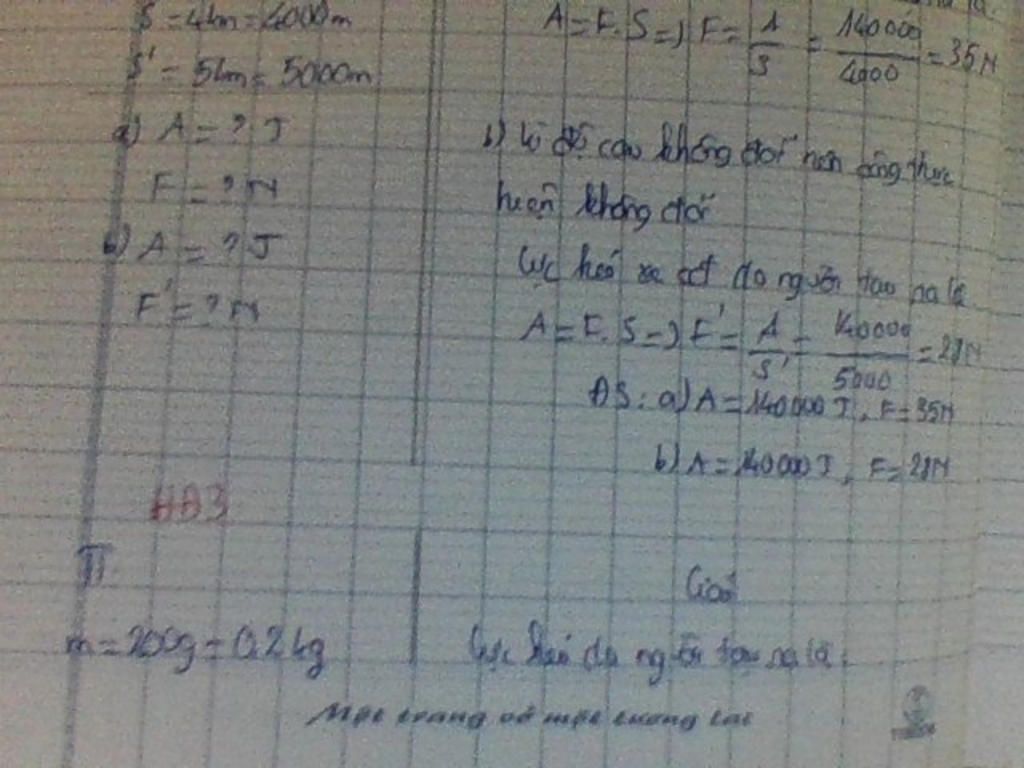 S = 4km = 4000m
S' = 5km = 5000m
a) A = ? J
F = ? N
b) A = ? J
F' = ? N
A = F. S => F = A/S = 140000/4000 = 35N
b) Vì độ cao không đổi nên công thực
hiện không đổi
Lực kéo xe do người tạo ra là
A = F. S => F' = A/S' = 140000/5000 = 28N
ĐS: a) A = 140000 J, F = 35N
b) A = 140000 J, F = 28N
HĐ3
TT
Giải
m = 200g = 0.2kg
Lực kéo do người tạo ra là:
Một trang vở một tương lai